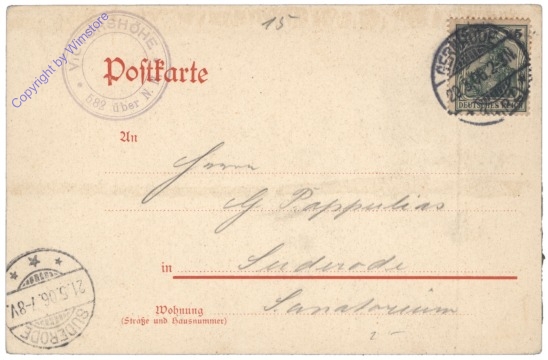 15
VICTORSHÖHE
* 582 über N.
Postkarte
Copyright by Wimstore
GERNRODE
5
DEUTSCHES REICH
An
Herrn
G Pappulias
in Suderode
Wohnung
(Straße und Hausnummer)
Sanatorium
SUDERODE
21.5.06.7-8V.